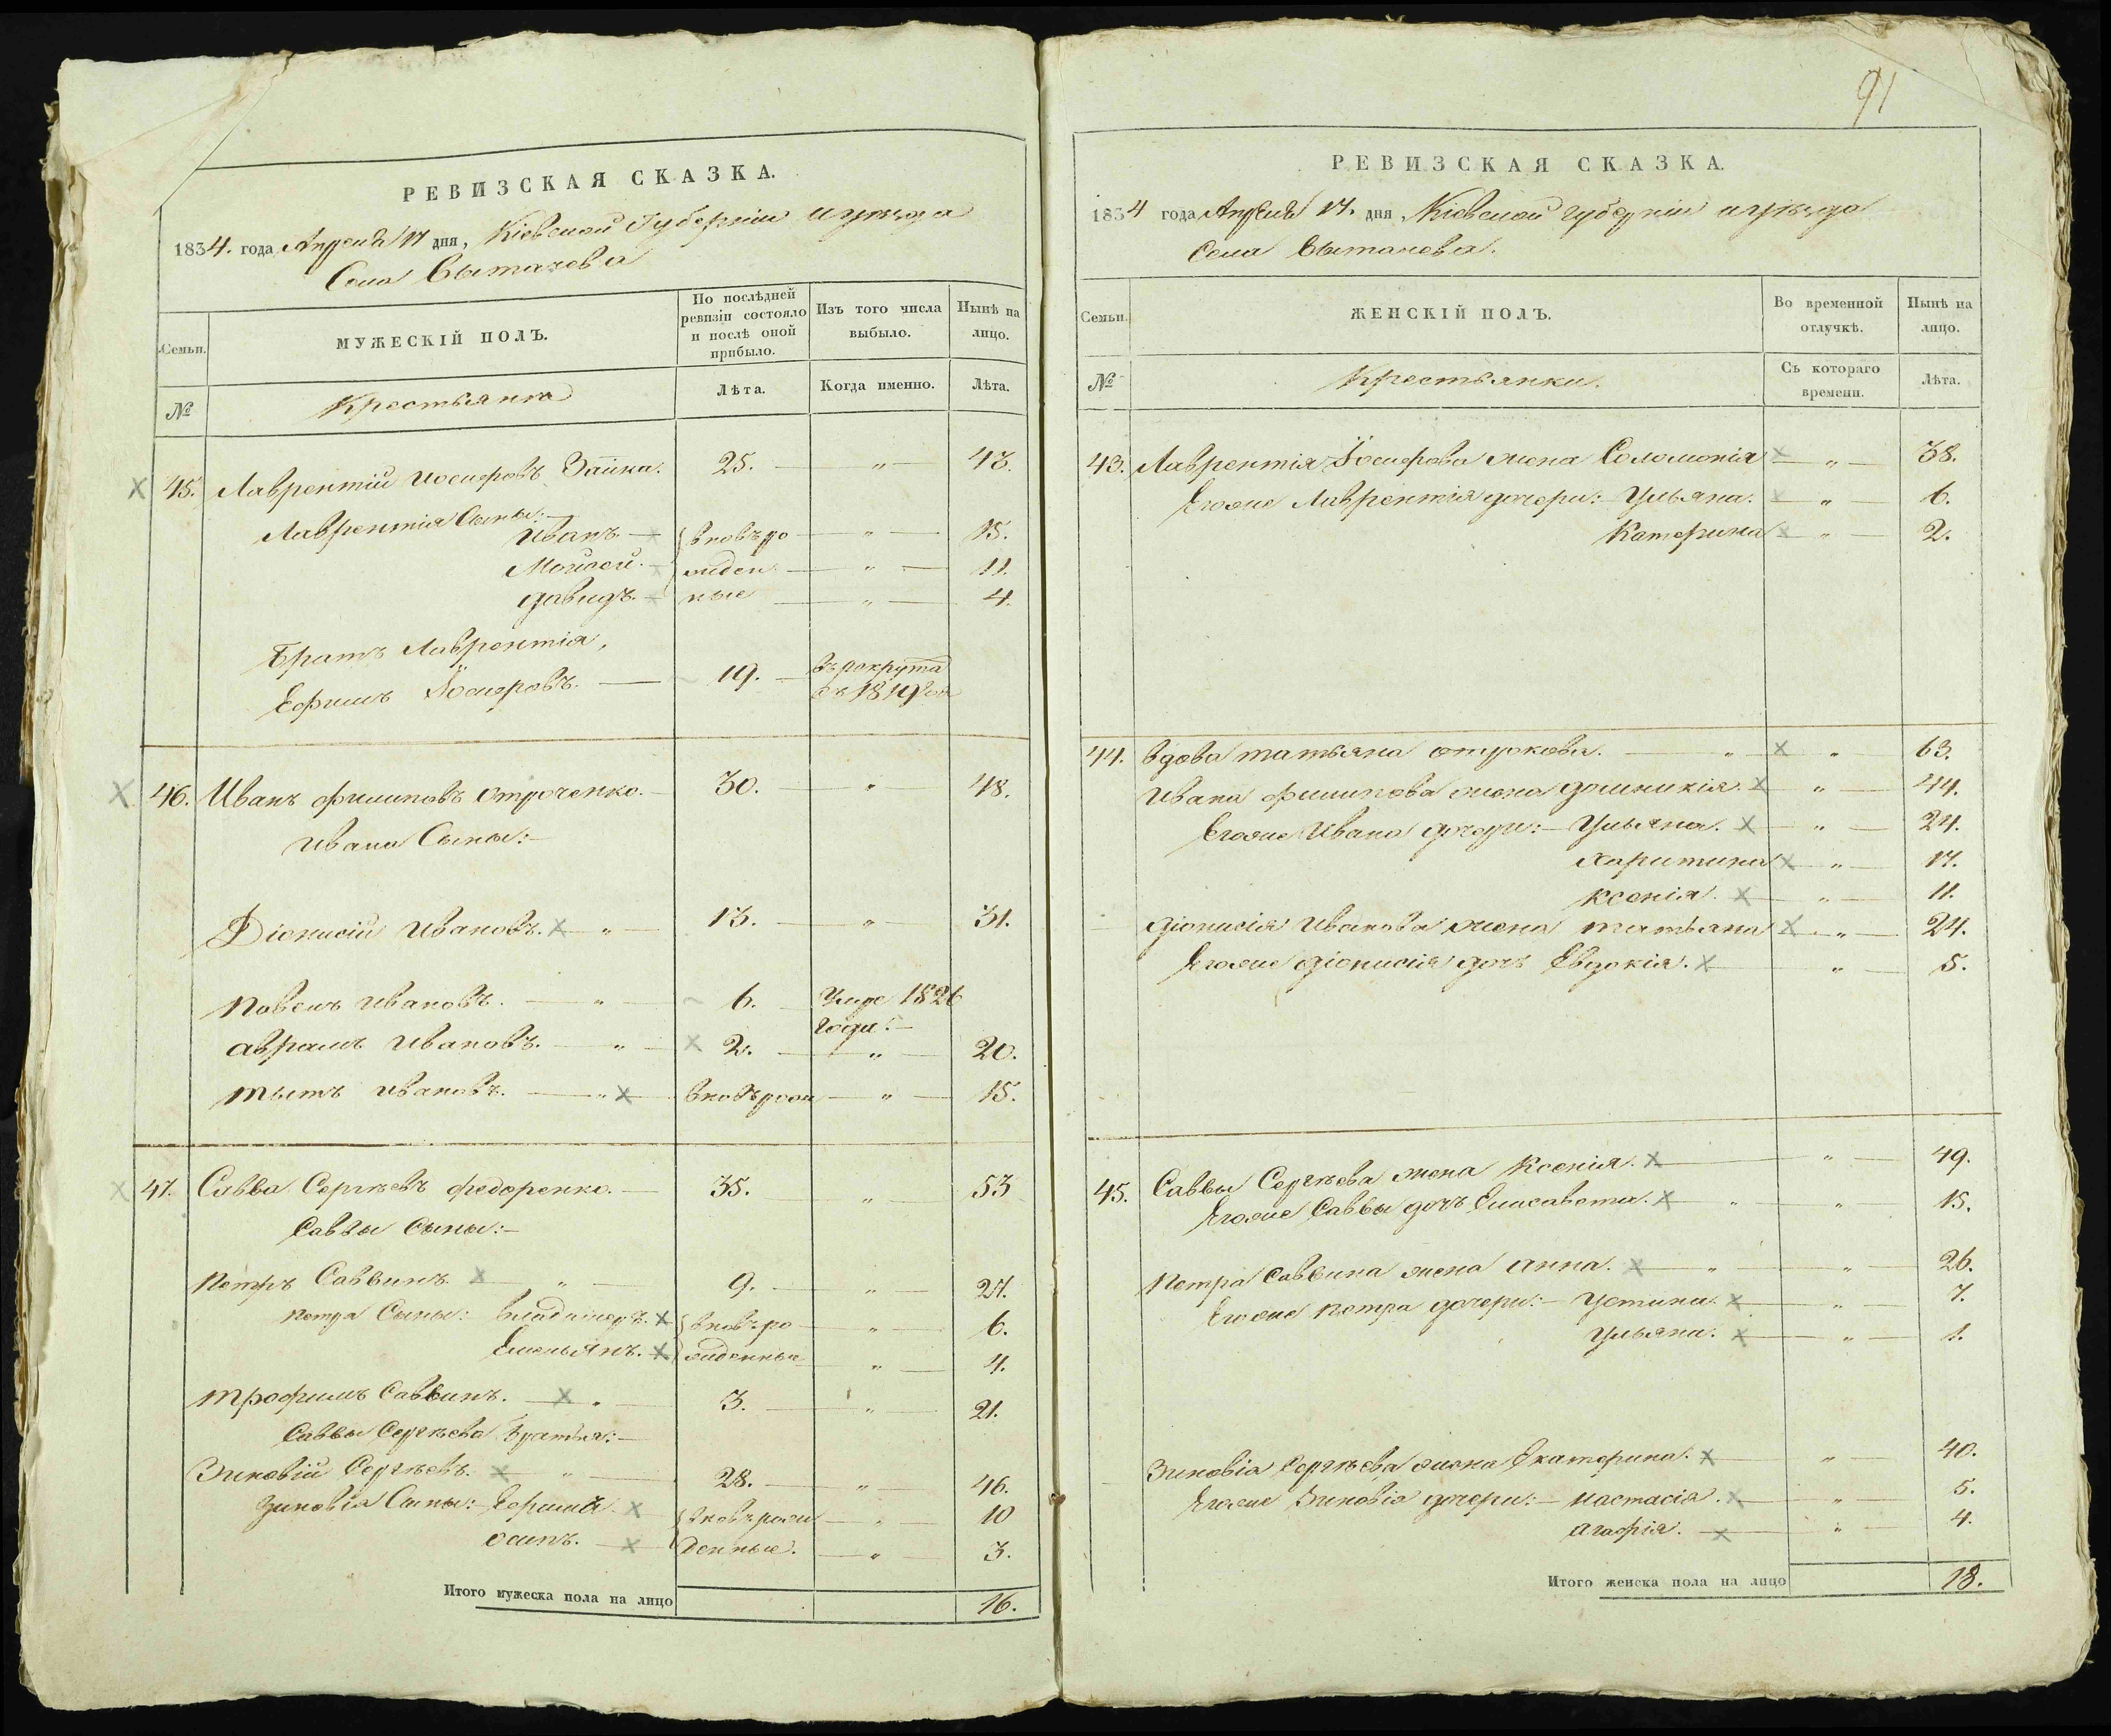 РЕВИЗСКАЯ СКАЗКА.
1834. года Апреля 17 дня, Кіевской Губерніи и уѣзда
Села Вытачева
Семьи.
МУЖЕСКІЙ ПОЛЪ.
По послѣдней ревизіи состояло и послѣ оной прибыло.
Изъ того числа выбыло.
Нынѣ на лицо.
№
Крестьяна
Лѣта.
Когда именно.
Лѣта.
45. Лаврентій Иосифовъ Заика. 25. — „ — 43.
Лаврентія Сыны:—
Иванъ — вновъро — „ — 15.
Мойсей. — жден — „ — 11.
Давидъ. — ные — „ — 4.
Братъ Лаврентія,
Ефимъ Іосифовъ. — 19. — въ рекрута
въ 1819 год
46. Иванъ Филиповъ Отроченко. 30. — „ — 48.
Ивана Сыны:—
Діонисій Ивановъ. „ — 13. — „ — 31.
Павелъ Ивановъ. — „ — 6. — Умре 1826
года.—
Аврамъ Ивановъ. — „ — 2. — „ — 20.
Тытъ Ивановъ. — „ — вновърож — „ — 15.
47. Савва Сергѣевъ Федоренко. — 35. „ 53
Саввы Сыны:—
Петръ Саввинъ. — „ — 9. — „ — 27.
Петра Сыны: Владимеръ. вновъро — „ — 6.
Емельянъ. жденные „ — 4.
Трофимъ Саввинъ. — „ 3. — „ — 21.
Саввы Сергѣева Братья:—
Зиновій Сергѣевъ. — „ — 28. — „ — 46.
Зиновія Сыны: Герасимъ. вновърож — „ — 10
Осипъ. — денные. — „ — 3.
Итого мужеска пола на лицо 16.
91
РЕВИЗСКАЯ СКАЗКА.
1834 года Апреля 17. дня, Кіевской губерніи и уѣзда
Села Вытачева.
Семьи.
ЖЕНСКІЙ ПОЛЪ.
Во временной отлучкѣ.
Нынѣ на лицо.
№
Крестьянки.
Съ котораго времени.
Лѣта.
43. Лаврентія Іосифова жена Соломонія — „ — 38.
Егоже Лаврентія дочери: Ульяна. — „ — 6.
Катерина — „ — 2.
44. Вдова Татьяна — „ „ 63.
Ивана Филипова жена Домникія. „ — 44.
Егоже Ивана дочери:— Ульяна. — „ — 24.
Харитина — „ — 17.
Ксенія. — „ — 11.
Діонисія Иванова жена Татьяна — „ — 24.
Егоже Діонисія дочь Евдокія. — „ — 5.
45. Саввы Сергѣева жена Ксенія. — „ — 49.
Егоже Саввы дочъ Елисавета. „ „ — 15.
Петра Саввина жена Анна. — „ — „ — 26.
Егоже Петра дочери:— Устина. — „ — 7.
Ульяна. — „ — 1.
Зиновія Сергѣева жена Екатерина. — „ — 40.
Егоже Зиновія дочери:— Настасія. — „ — 5.
Агафія. — „ — 4.
Итого женска пола на лицо 18.